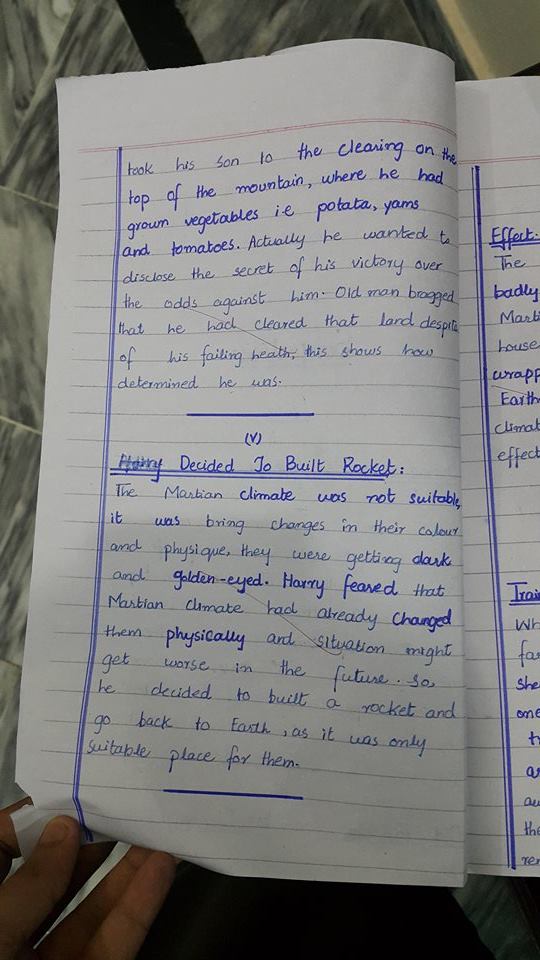 took his son to the clearing on the
top of the mountain, where he had
grown vegetables i.e potata, yams
and tomatoes. Actually he wanted to
disclose the secret of his victory over
the odds against him. Old man bragged
that he had cleared that land despite
of his failing heath, this shows how
determined he was.
(V)
Harry Decided To Built Rocket:
The Martian climate was not suitable,
it was bring changes in their colour
and physique, they were getting dark
and golden-eyed. Harry feared that
Martian climate had already changed
them physically and situation might
get worse in the future. So,
he decided to built a rocket and
go back to Earth, as it was only
suitable place for them.
Effect:
The
badly
Marti
house
wrapp
Earth
climat
effect
Trai
Wh
far
she
one
tr
ar
au
the
rer